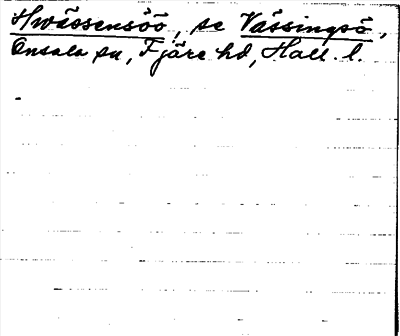 Hwässensöö, se Vässingsö,
Onsala sn, Fjäre hd, Hall. l.